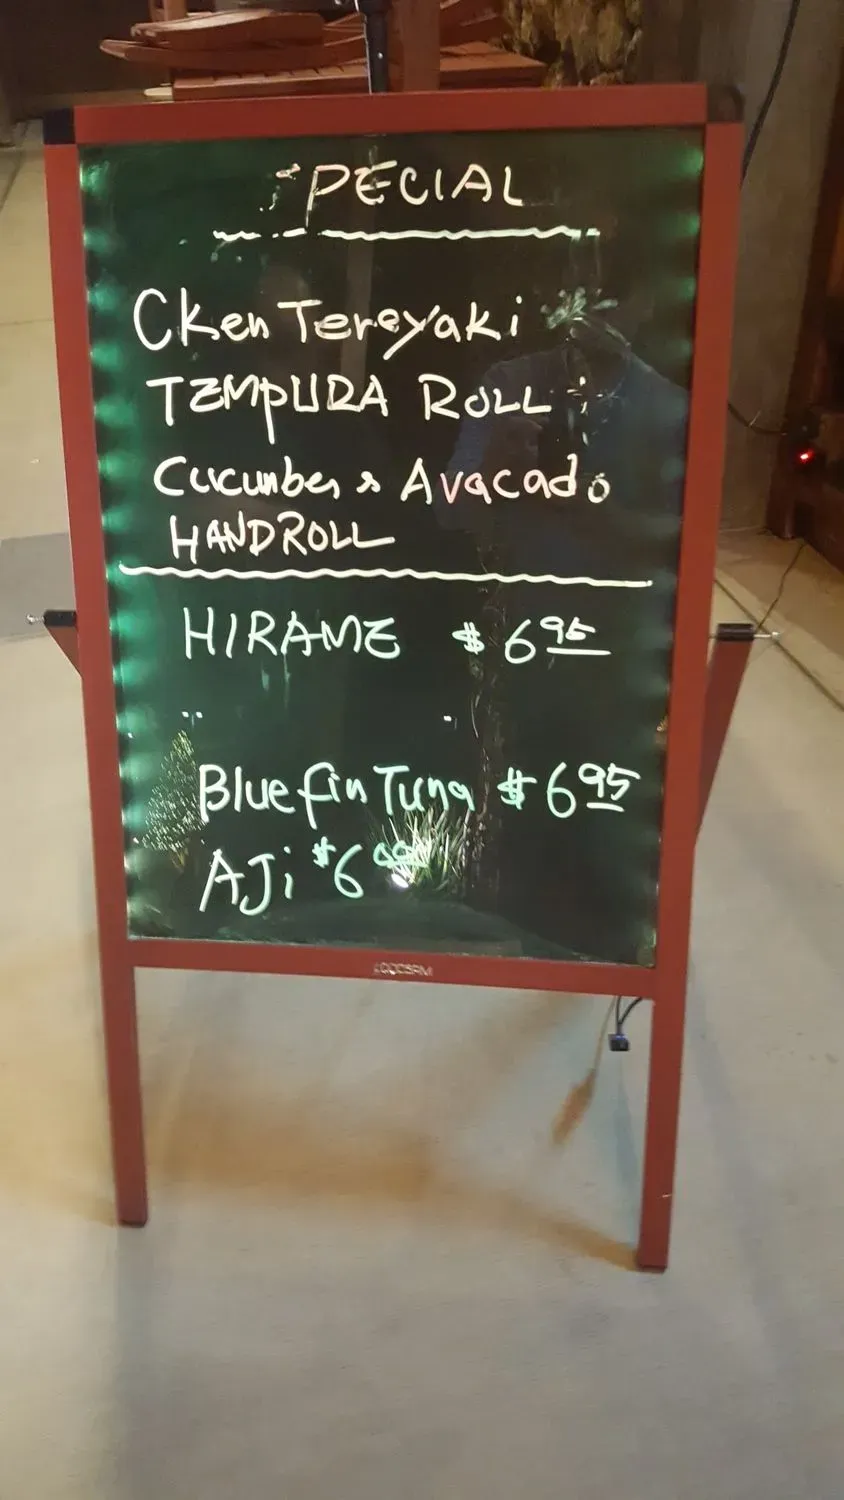 SPECIAL
Cken Tereyaki
TEMPURA ROLL
Cucumber & Avacado
HANDROLL
HIRAME $6 95
Bluefin Tuna $6 95
AJi $6